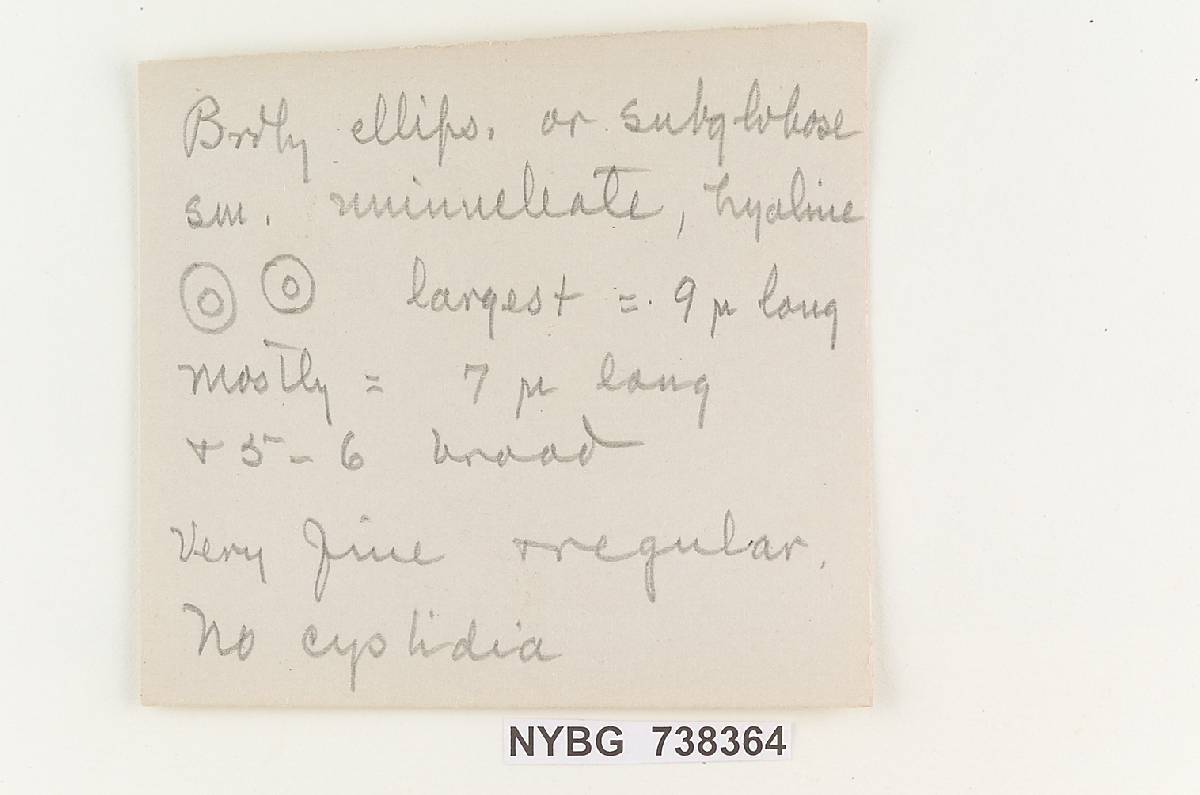 Brdly ellips. or subglobose
sm. uninucleate, hyaline
largest = 9 µ long
mostly = 7 µ long
+ 5 - 6 broad
Very fine + regular.
No cystidia
NYBG 738364